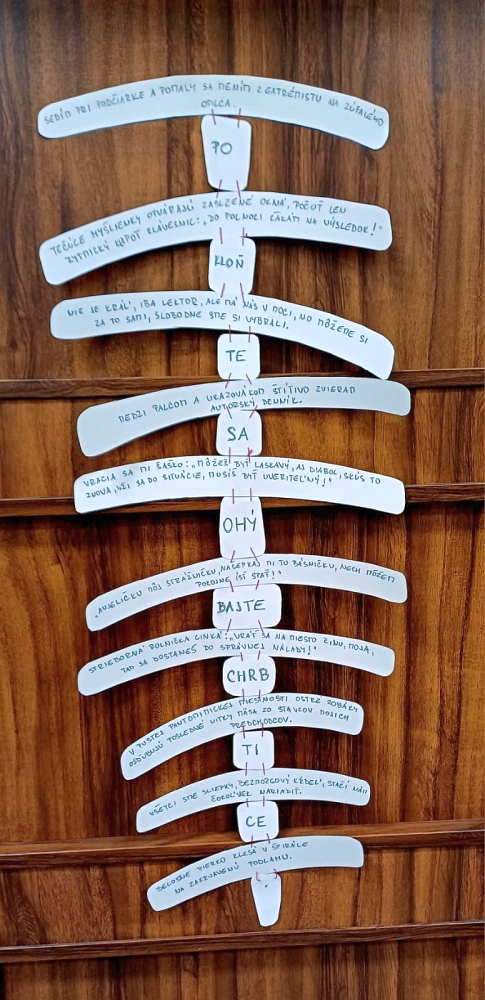 SEDÍM PRI PODČIARKE A POMALY SA MENÍM Z EXTRÉMISTU NA ZÚFALÉHO
OPILCA.
PO
TEČÚCE MYŠLIENKY OTVÁRAJÚ ZASKLENÉ OKNÁ, POČUŤ LEN
RYTMICKÝ KLEPOT KLÁVESNIC: „DO POLNOCI ČAKÁM NA VÝSLEDOK!"
KLOŇ
NIE JE KRÁĽ, IBA LEKTOR, ALE MÁ NÁS V MOCI, NO MÔŽEME SI
ZA TO SAMI, SLOBODNE SME SI VYBRALI.
TE
MEDZI PALCOM A UKAZOVÁKOM ŠTÍTIVO ZVIERAM
AUTORSKÝ DENNÍK.
SA
VRACIA SA MI ŤAŽKO: „MÔŽEŠ BYŤ LASKAVÝ, AJ DIABOL, SKÚS TO
ZNOVA, VŽI SA DO SITUÁCIE, MUSÍŠ BYŤ UVERITEĽNÝ!"
OHÝ
„ANJELIČKU MÔJ STRÁŽNIČKU, NAŠEPKAJ MI TU BÁSNIČKU, NECH MÔŽEM
POKOJNE ÍSŤ SPAŤ!"
BAJTE
STRIEBORNÁ ROLNIČKA CINKÁ: „VRÁŤ SA NA MIESTO ČINU, MOJA,
TAM SA DOSTANEŠ DO SPRÁVNEJ NÁLADY!"
CHRB
V PUSTEJ PANTOMICKEJ MIESTNOSTI OSTRÉ ZOBÁKY
OŠKUBUJÚ POSLEDNÉ NITKY MÄSA ZO STAVCOV MOJICH
PREDCHODCOV.
TI
VŠETCI SME SLIEPKY, BEZMOZGOVÝ KŔDEĽ, STAČÍ NÁM
ČOKOĽVEK NARIADIŤ.
CE
BELOSTNÉ PIERKO KLESÁ V ŠPIRÁLE
NA ZAKRVAVENÚ PODLAHU.
.